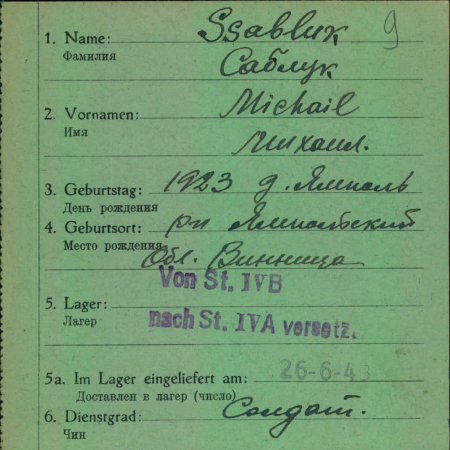 9
1. Name: Ssabluk
Фамилия Саблук
2. Vornamen: Michail
Имя Михаил.
3. Geburtstag: 1923 д. Ямполь
День рождения
4. Geburtsort: рн Ямпольский
Место рождения Обл. Винница
Von St. IVB
5. Lager:
Лагер nach St. IVA versetzt.
5a. Im Lager eingeliefert am: 26-6-43
Доставлен в лагер (число)
6. Dienstgrad: Солдат.
Чин